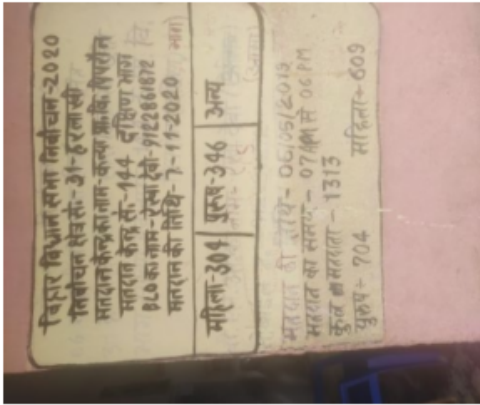 बिहार विधान सभा निर्वाचन-2020
निर्वाचन क्षेत्र सं०- 31-हरलाखी
मतदान केन्द्र का नाम-कन्या प्रा०वि० पिपरौन
मतदान केन्द्र सं०-144 दक्षिण भाग
BLO का नाम-रेखा देवी-9122861872
मतदान की तिथि-7-11-2020
महिला-304 पुरुष-346 अन्य
मतदान की तिथि- 06/05/2019
मतदान का समय- 07AM से 06PM
कुल मतदाता - 1313
पुरुष- 704 महिला- 609